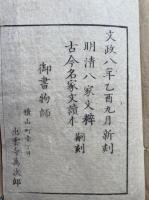 文政八年乙酉九月新刻
明清八家文粹
古今名家文讀本 嗣刻
御書物師
横山町
出雲寺萬次郎